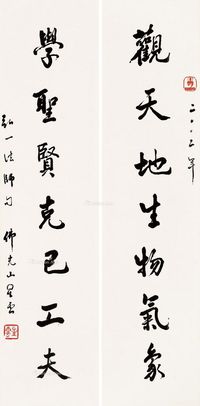 觀天地生物氣象
二〇〇二年
學聖賢克己工夫
弘一法師句 佛光山星雲